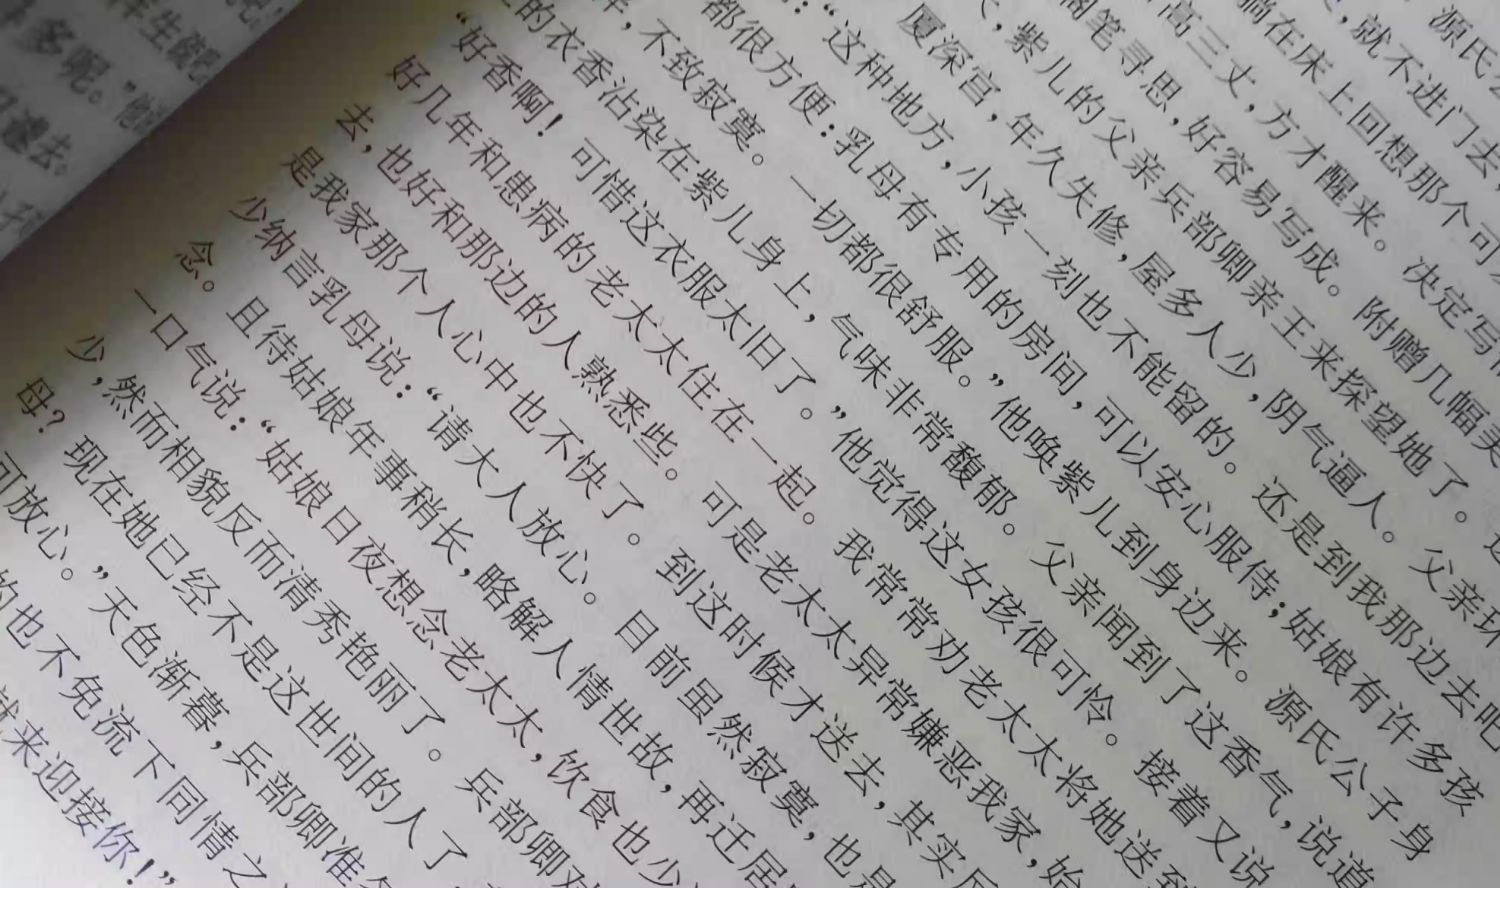 生做吧
多呢。”他
遣去。
源氏公
就不进门去,
躺在床上回想那个可
高三丈,方才醒来。决定写信
搁笔寻思,好容易写成。附赠几幅美
,紫儿的父亲兵部卿亲王来探望她了。
厦深宫,年久失修,屋多人少,阴气逼人。父亲环
:“这种地方,小孩一刻也不能留的。还是到我那边去吧
都很方便:乳母有专用的房间,可以安心服侍;姑娘有许多孩
,不致寂寞。一切都很舒服。”他唤紫儿到身边来。源氏公子身
的衣香沾染在紫儿身上,气味非常馥郁。父亲闻到了这香气,说道
“好香啊!可惜这衣服太旧了。”他觉得这女孩很可怜。接着又说
好几年和患病的老太太住在一起。我常常劝老太太将她送到
去,也好和那边的人熟悉些。可是老太太异常嫌恶我家,始
是我家那个人心中也不快了。到这时候才送去,其实反
少纳言乳母说:“请大人放心。目前虽然寂寞,也是
念。且待姑娘年事稍长,略解人情世故,再迁居
一口气说:“姑娘日夜想念老太太,饮食也少
少,然而相貌反而清秀艳丽了。兵部卿对
母?现在她已经不是这世间的人了,
可放心。”天色渐暮,兵部卿准备
的也不免流下同情之
就来迎接你!”